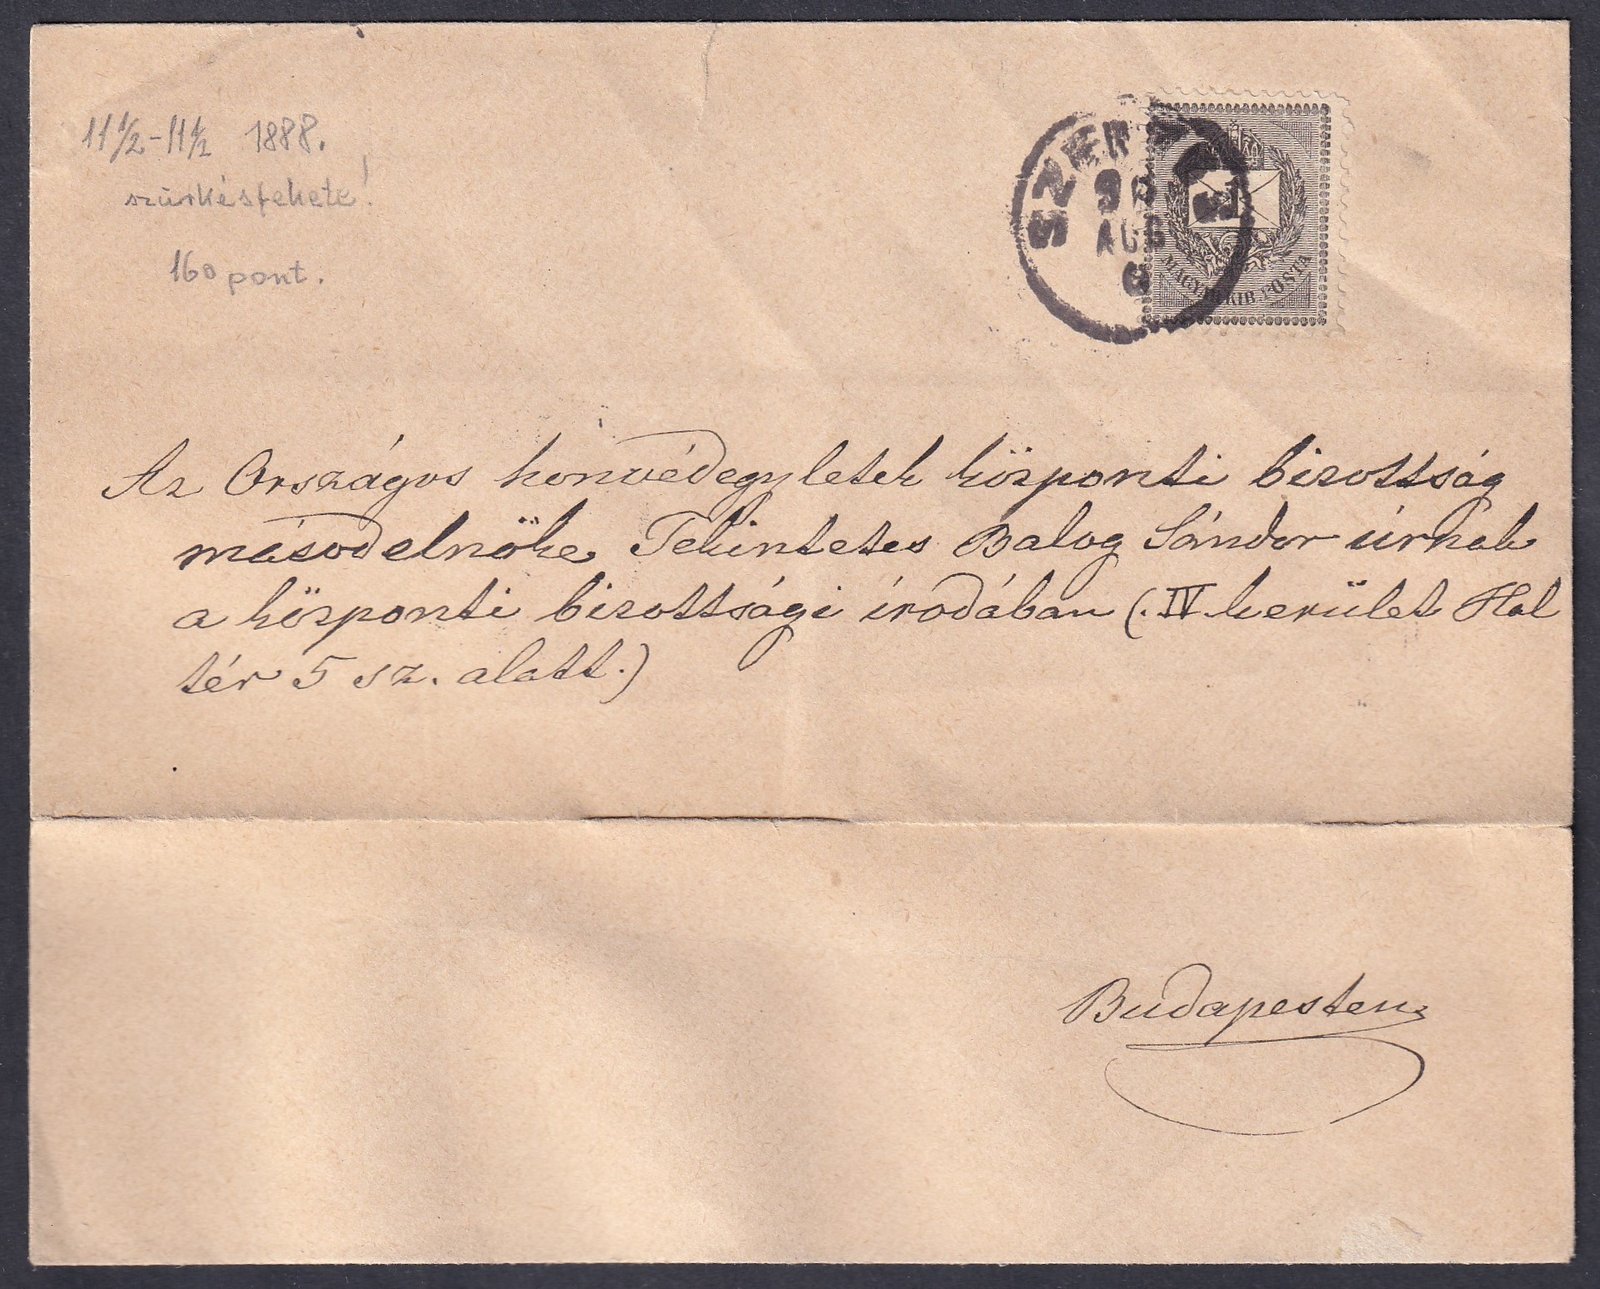 11½-11½ 1888.
szürkésfekete!
160 pont.
90
AUG
6
5
MAGYAR KIR. POSTA
Az Országos honvédegyletek központi bizottság
másodelnöke Tekintetes Balog Sándor úrnak
a központi bizottsági irodában (. IV kerület Hal
tér 5 sz. alatt.)
Budapesten